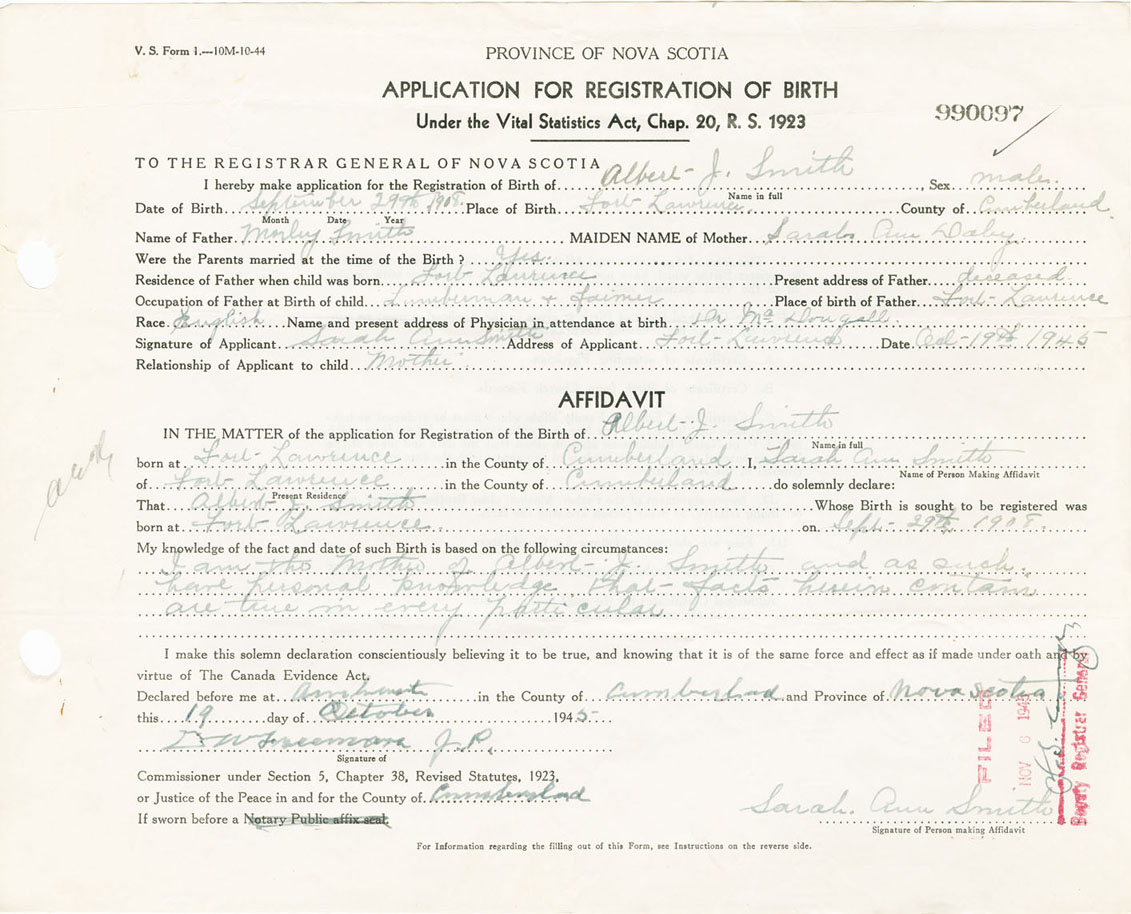 V. S. Form 1.—10M-10-44
PROVINCE OF NOVA SCOTIA
APPLICATION FOR REGISTRATION OF BIRTH
Under the Vital Statistics Act, Chap. 20, R. S. 1923
990097
TO THE REGISTRAR GENERAL OF NOVA SCOTIA
I hereby make application for the Registration of Birth of Albert J. Smith, Sex male
Name in full
Date of Birth September 29th 1908 Place of Birth Fort Lawrence County of Cumberland
Month Date Year
Name of Father Morley Smith MAIDEN NAME of Mother Sarah Ann Daley
Were the Parents married at the time of the Birth? Yes
Residence of Father when child was born Fort Lawrence Present address of Father deceased
Occupation of Father at Birth of child Lumberman & Farmer Place of birth of Father Fort Lawrence
Race English Name and present address of Physician in attendance at birth Dr McDougall
Signature of Applicant Sarah Ann Smith Address of Applicant Fort Lawrence Date Oct 19th 1945
Relationship of Applicant to child Mother
AFFIDAVIT
IN THE MATTER of the application for Registration of the Birth of Albert J. Smith
Name in full
born at Fort Lawrence in the County of Cumberland I, Sarah Ann Smith
Name of Person Making Affidavit
of Fort Lawrence in the County of Cumberland do solemnly declare:
Present Residence
That Albert J. Smith Whose Birth is sought to be registered was
born at Fort Lawrence on Sept. 29th 1908
My knowledge of the fact and date of such Birth is based on the following circumstances:
I am the Mother of Albert J. Smith and as such
have personal knowledge that facts herein contain
are true in every particular
I make this solemn declaration conscientiously believing it to be true, and knowing that it is of the same force and effect as if made under oath and by
virtue of The Canada Evidence Act.
Declared before me at Amherst in the County of Cumberland and Province of Nova Scotia
this 19 day of October 1945
Freeman J.P.
Signature of
Commissioner under Section 5, Chapter 38, Revised Statutes, 1923,
or Justice of the Peace in and for the County of Cumberland
If sworn before a Notary Public affix seal.
Sarah Ann Smith
Signature of Person making Affidavit
FILED
NOV 6 194
Deputy Registrar General
For Information regarding the filling out of this Form, see Instructions on the reverse side.